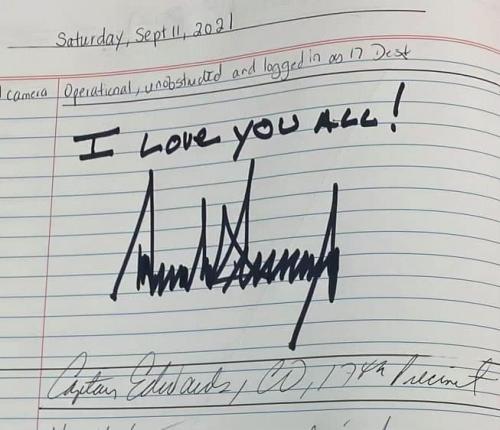 Saturday, Sept 11, 2021
camera Operational, unobstructed and logged in on 17 Desk
I LOVE YOU ALL!
Captain Edwards, CO, 17th Precinct